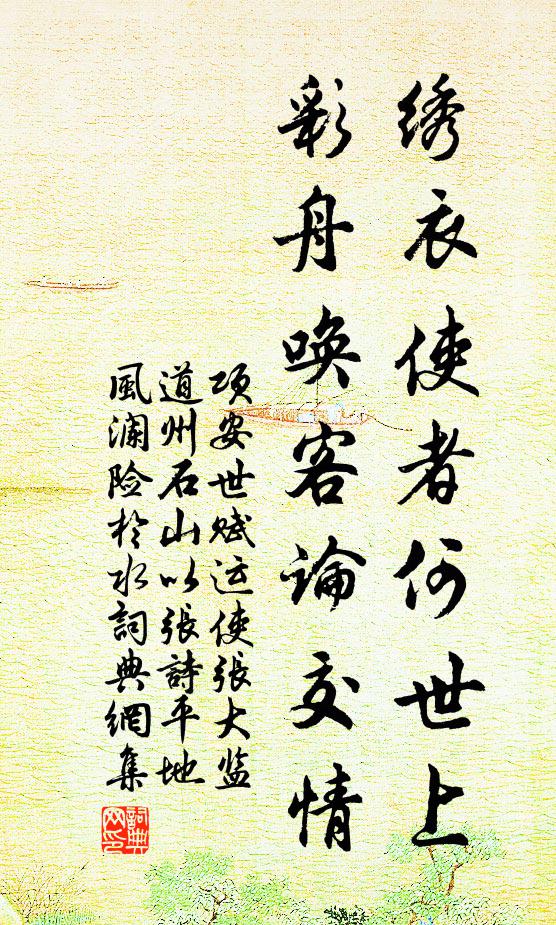 绣衣使者何世上
彩舟唤客論交情
项安世赋运使張大监
道州石山以張詩平地
風澜险於水詞典網集
詞典
网印